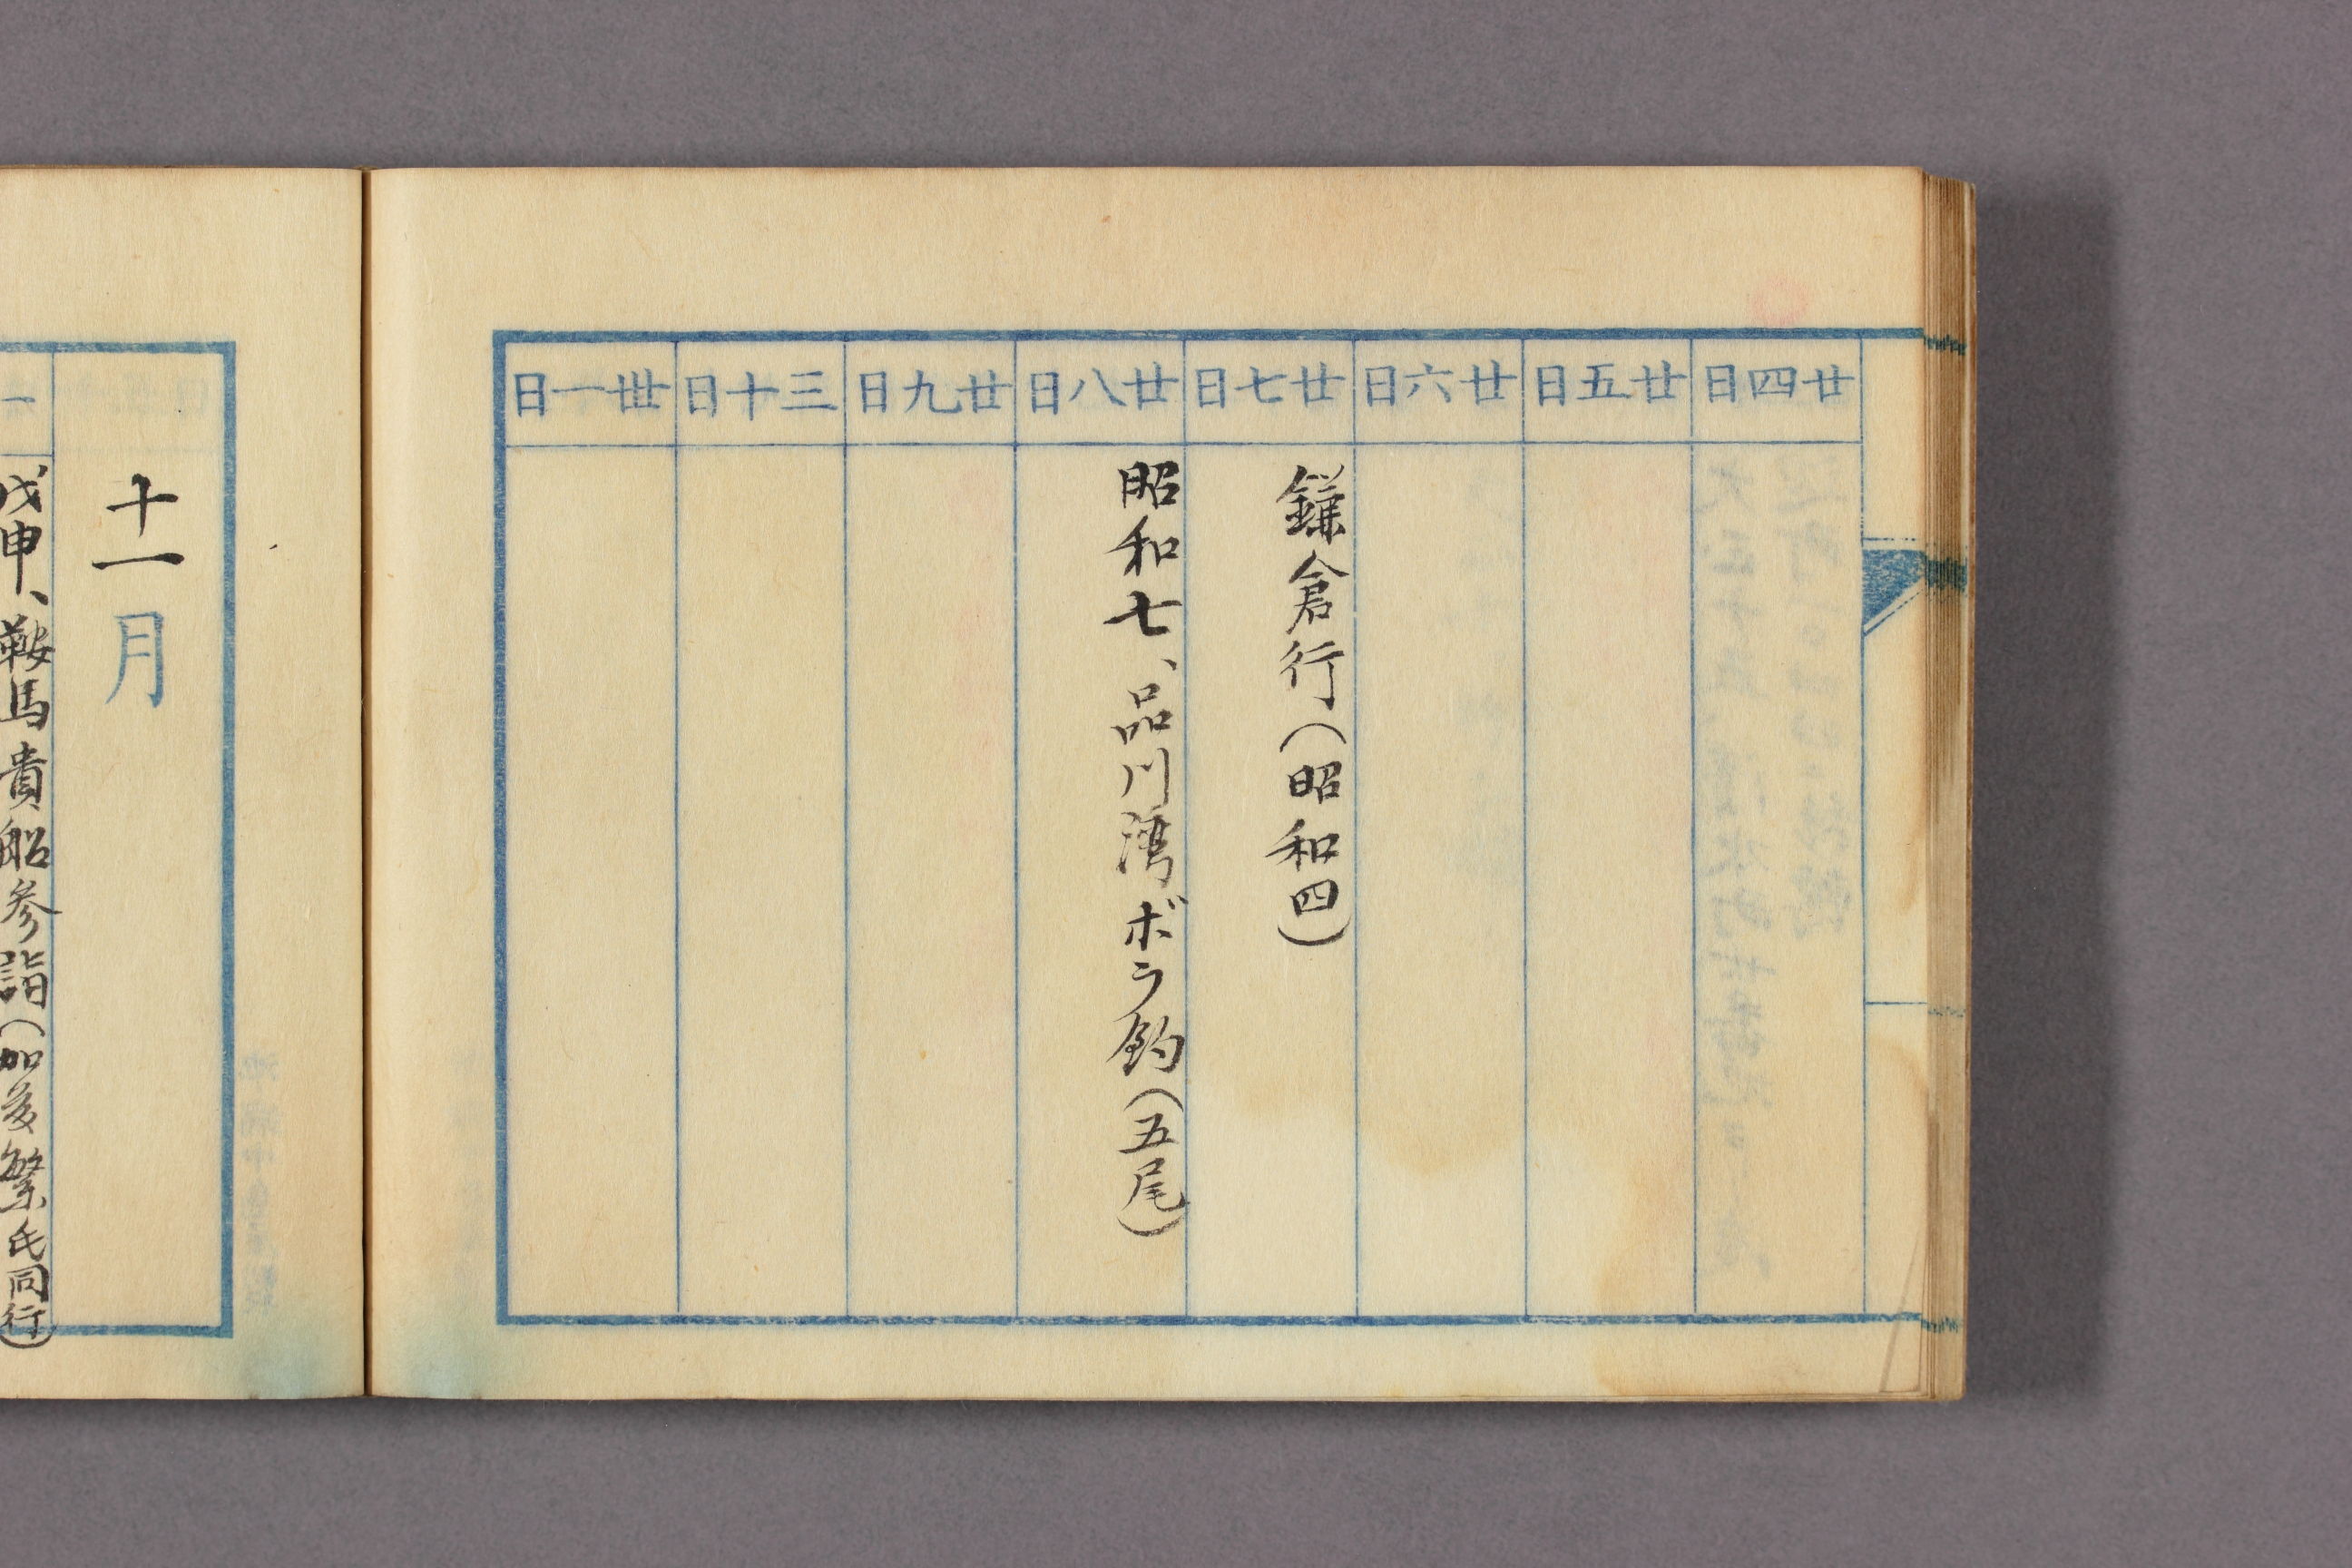 廿四日
廿五日
廿六日
廿七日
鎌倉行(昭和四)
廿八日
昭和七、品川湾ボラ釣(五尾)
廿九日
三十日
卅一日
十一月
一
戊申、鞍馬貴船参詣(加藤繁氏同行)